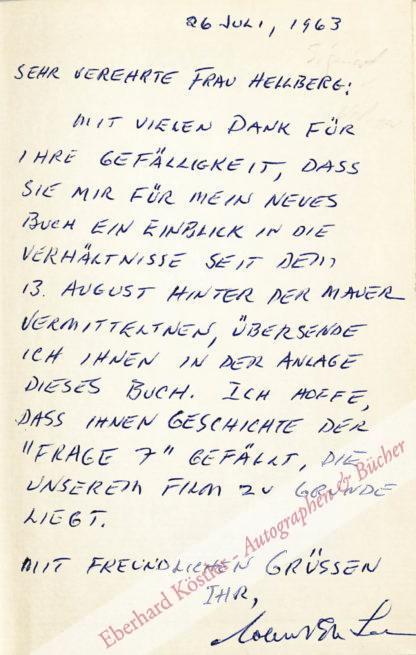 26 JULI, 1963
SEHR VEREHRTE FRAU HELLBERG:
MIT VIELEN DANK FÜR
IHRE GEFÄLLIGKEIT, DASS
SIE MIR FÜR MEIN NEUES
BUCH EIN EINBLICK IN DIE
VERHÄLTNISSE SEIT DEM
13. AUGUST HINTER DER MAUER
VERMITTELTNEN, ÜBERSENDE
ICH IHNEN IN DER ANLAGE
DIESES BUCH. ICH HOFFE,
DASS IHNEN GESCHICHTE DER
"FRAGE 7" GEFÄLLT, DIE
UNSEREM FILM ZU GRUNDE
LIEGT.
MIT FREUNDLICHEN GRÜSSEN
IHR,
Eberhard Köstler - Autographen & Bücher